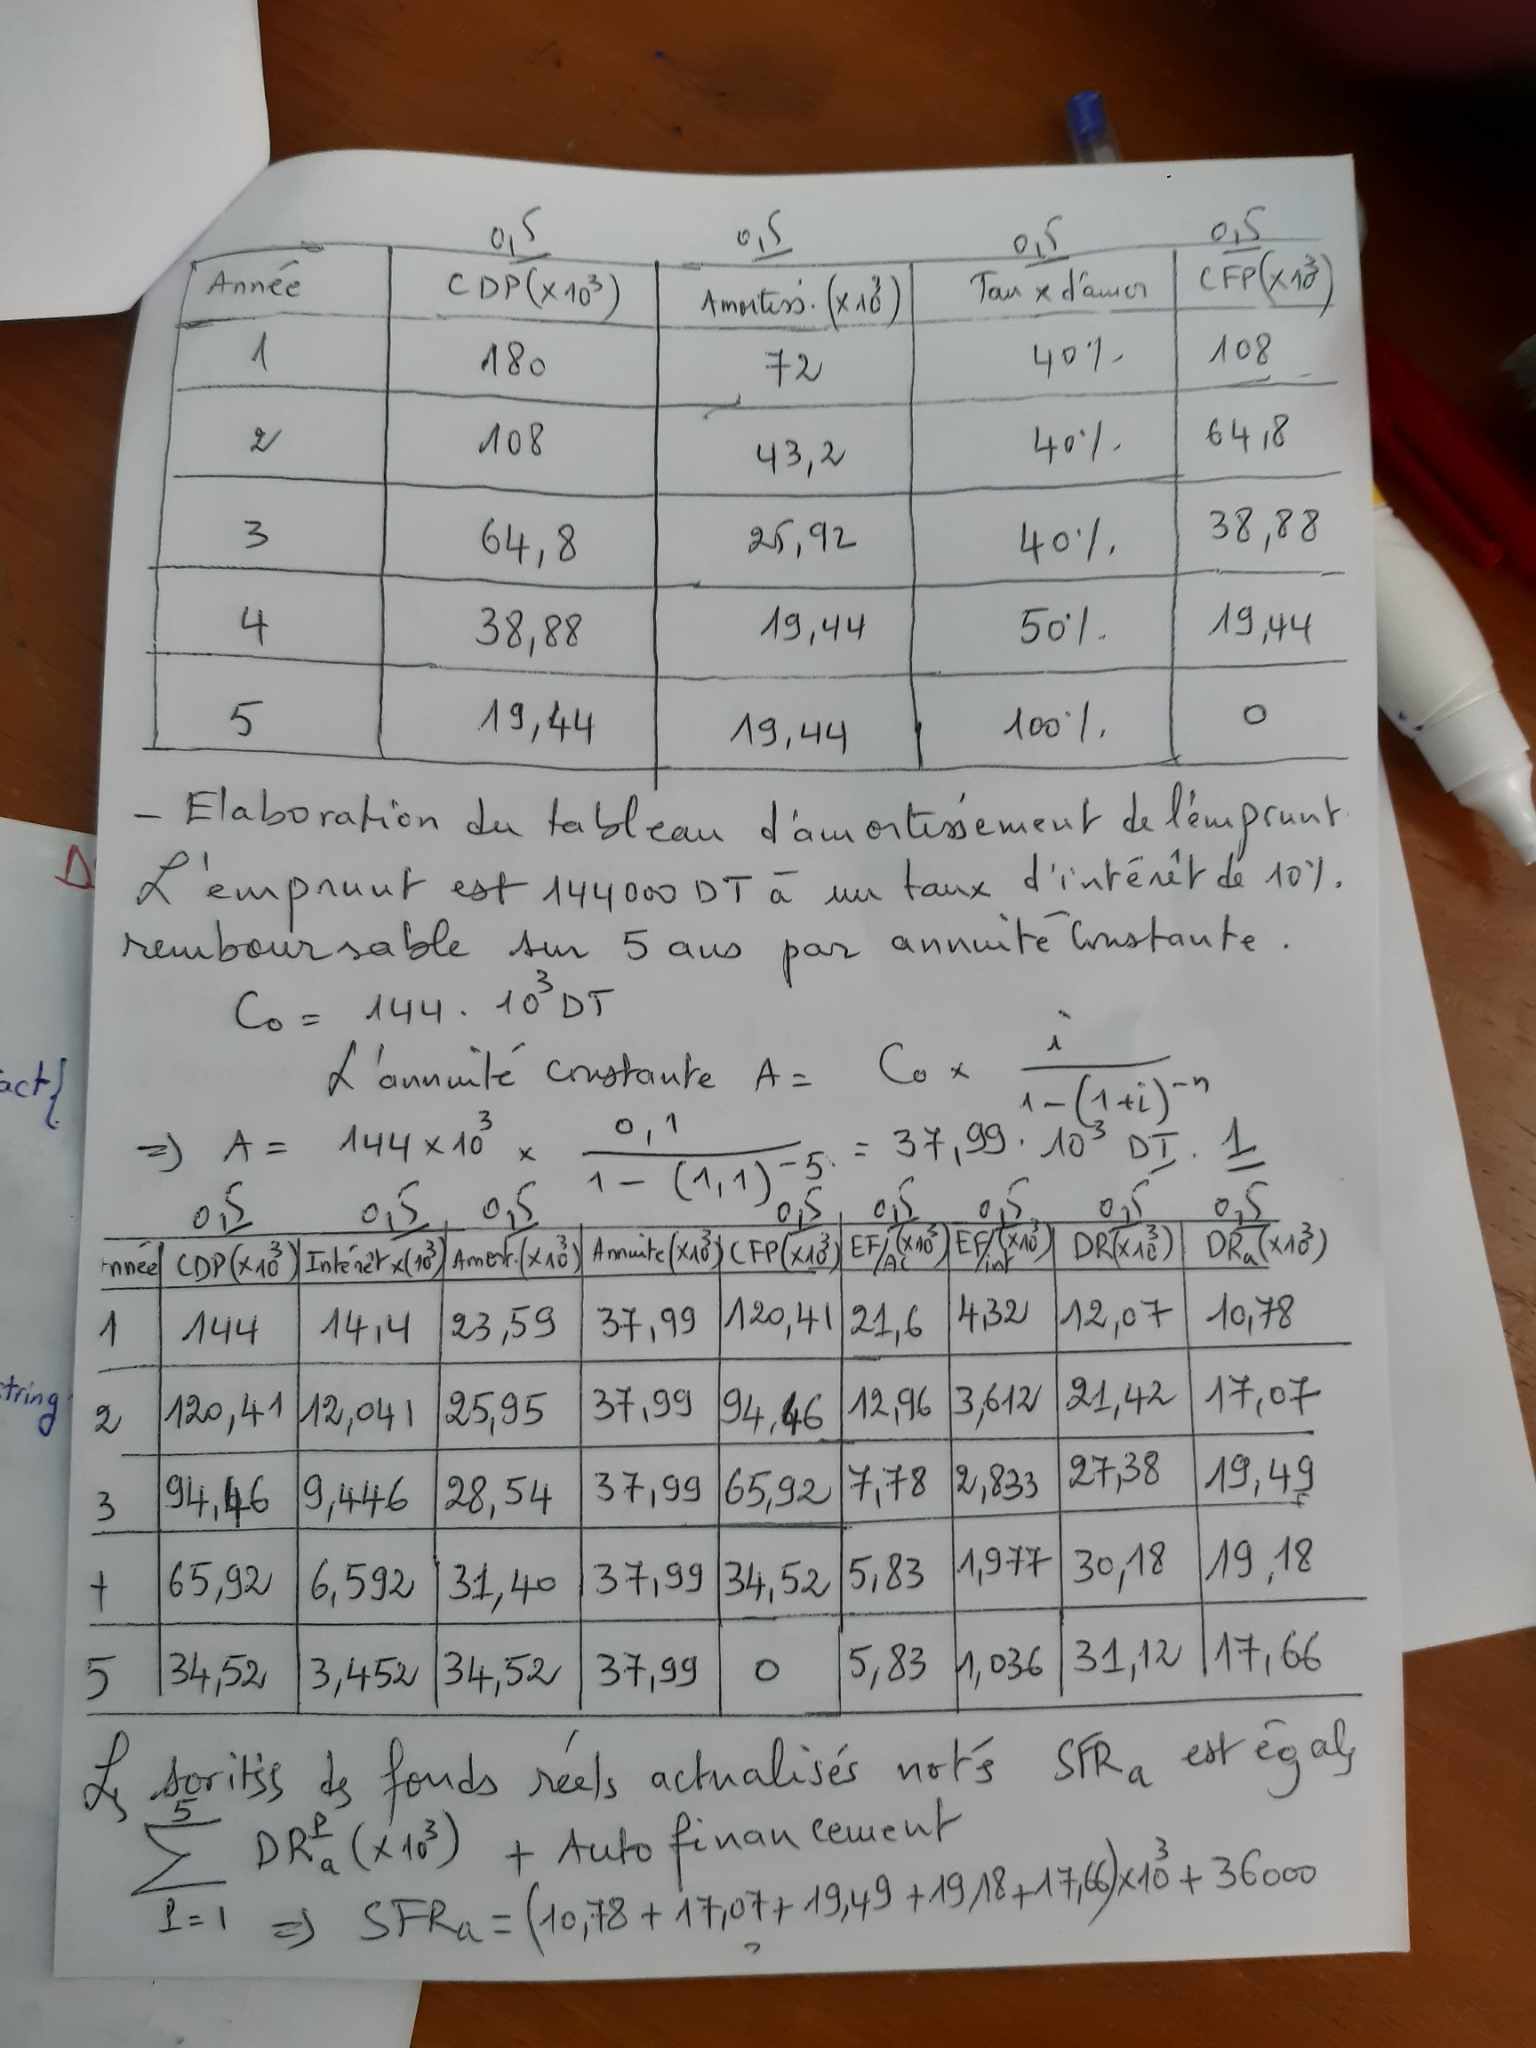 0,5 0,5 0,5 0,5
Année CDP(×10³) Amortiss.(×10³) Taux d'amor CFP(×10³)
1 180 72 40% 108
2 108 43,2 40% 64,8
3 64,8 25,92 40% 38,88
4 38,88 19,44 50% 19,44
5 19,44 19,44 100% 0
- Elaboration du tableau d'amortissement de l'emprunt.
L'emprunt est 144000 DT à un taux d'intérêt de 10%.
remboursable sur 5 ans par annuité constante.
C₀ = 144. 10³ DT
L'annuité constante A = C₀ × i / (1-(1+i)⁻ⁿ)
=> A = 144×10³ × 0,1 / (1-(1,1)⁻⁵) = 37,99. 10³ DT. 1
0,5 0,5 0,5 0,5 0,5 0,5 0,5 0,5
nnée CDP(×10³) Intérêt ×(10³) Amort.(×10³) Annuité(×10³) CFP(×10³) EF/Ac(×10³) EF/int(×10³) DR(×10³) DRₐ(×10³)
1 144 14,4 23,59 37,99 120,41 21,6 4,32 12,07 10,78
2 120,41 12,041 25,95 37,99 94,46 12,96 3,612 21,42 17,07
3 94,46 9,446 28,54 37,99 65,92 7,78 2,833 27,38 19,49
4 65,92 6,592 31,40 37,99 34,52 5,83 1,977 30,18 19,18
5 34,52 3,452 34,52 37,99 0 5,83 1,036 31,12 17,66
Les sorties de fonds réels actualisés notés SFRₐ est égale
5
∑ DRₐᴾ(×10³) + Autofinancement
P=1 => SFRₐ = (10,78 + 17,07 + 19,49 + 19,18 + 17,66)×10³ + 36000
D
act{
string